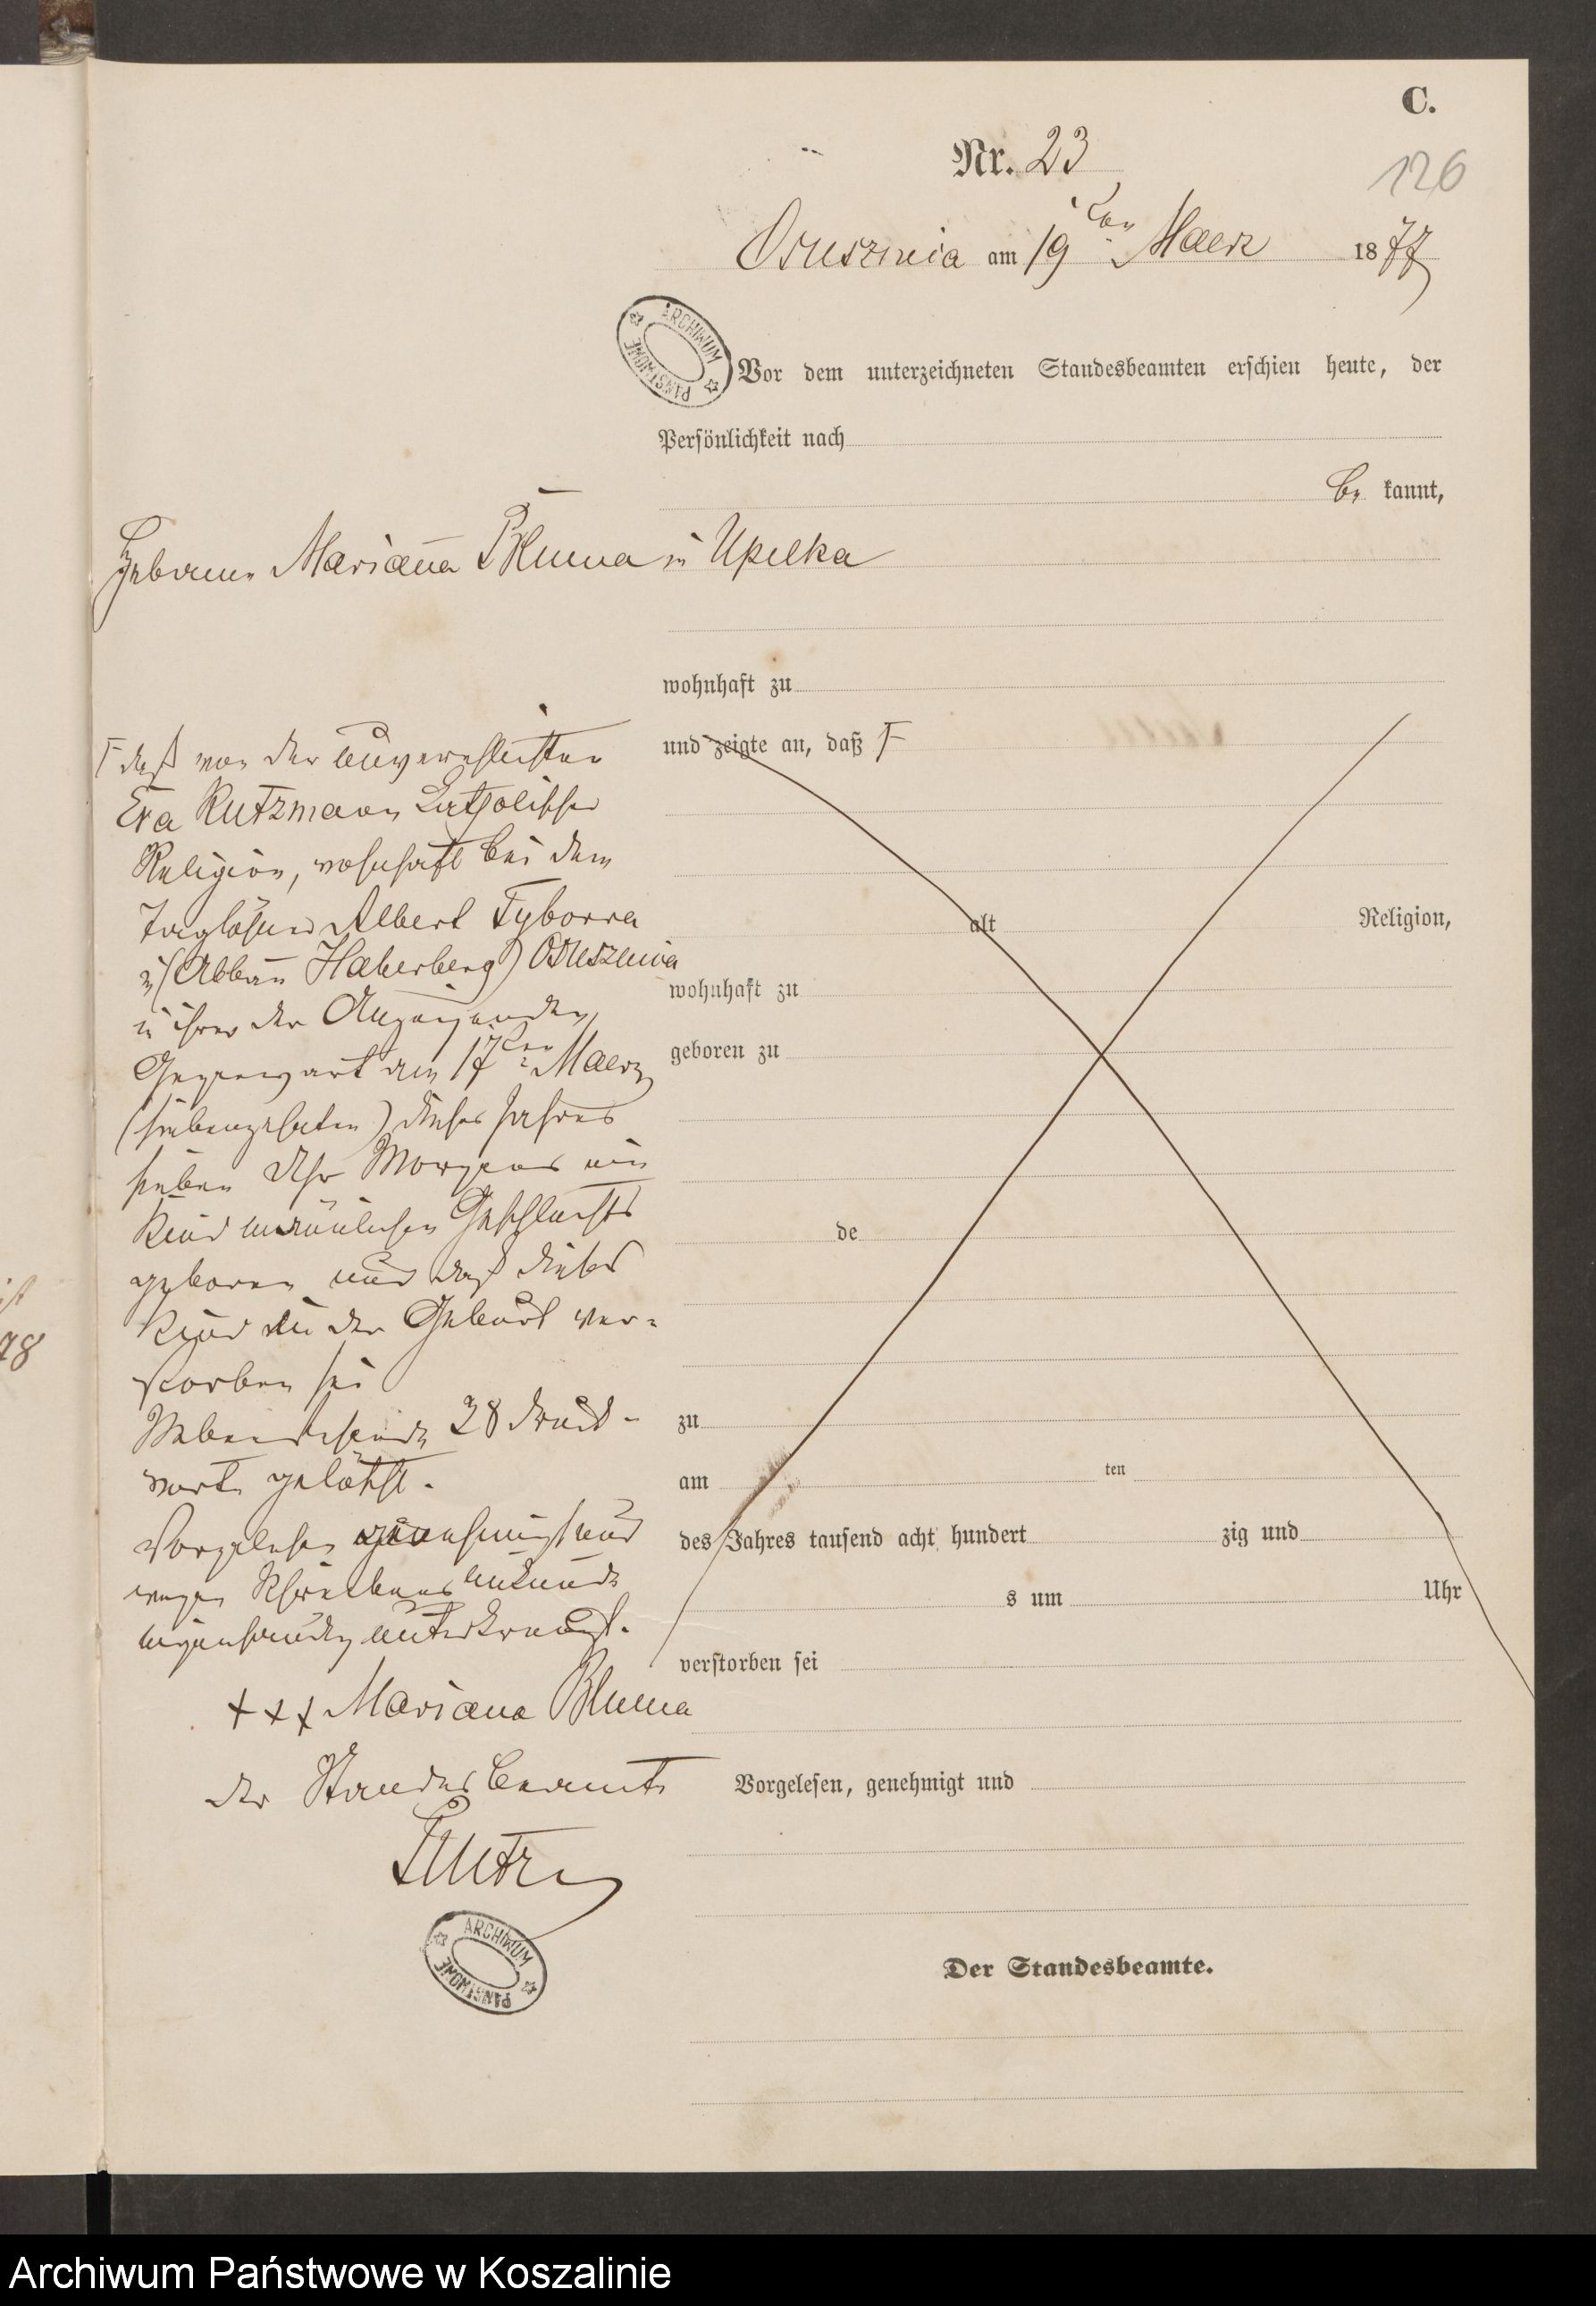 C.
Nr. 23
126
Osuszniça am 19ten Maerz 1877
ARCHIWUM PAŃSTWOWE
Vor dem unterzeichneten Standesbeamten erschien heute, der
Persönlichkeit nach
be kannt,
Hebamme Marianna Bluma in Upilka
wohnhaft zu
und zeigte an, daß F
F daß von der unverehelichten
Eva Kutzmann katholischer
Religion, wohnhaft bei dem
Taglöhner Albert Tyborra
zu (Abbau Haberberg) Osuszniça
in ihrer der Anzeigenden
Gegenwart am 17ten Maerz
(siebenzehnten) dieses Jahres
sieben Uhr Morgens ein
Kind männlichen Geschlechts
geboren und daß dieses
Kind in der Geburt ver-
storben sei
Nebenstehende 28 Druck-
worte gelöscht.
Vorgelesen genehmigt und
wegen Schreibens unkunde
eigenhändig unterkreuzt.
+++ Mariana Bluma
der Standesbeamte
alt Religion,
wohnhaft zu
geboren zu
de
zu
am ten
des Jahres tausend acht hundert zig und
s um Uhr
verstorben sei
Vorgelesen, genehmigt und
ARCHIWUM PAŃSTWOWE
Der Standesbeamte.
Archiwum Państwowe w Koszalinie